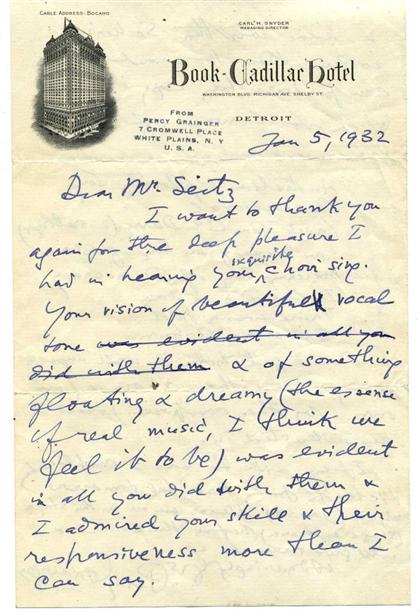 CABLE ADDRESS: BOCAHO
CARL M. SNYDER
MANAGING DIRECTOR
Book-Cadillac Hotel
WASHINGTON BLVD. MICHIGAN AVE. SHELBY ST.
DETROIT
FROM
PERCY GRAINGER
7 CROMWELL PLACE
WHITE PLAINS, N. Y
U. S. A.
Jan 5, 1932
Dear Mr Seitz
I want to thank you
again for the deep pleasure I
had in hearing your exquisite choir sing.
Your vision of beautiful vocal
tone was evident in all you
did with them & of something
floating & dreamy (the essence
of real music, I think we
feel it to be) was evident
in all you did with them &
I admired your skill & their
responsiveness more than I
can say.